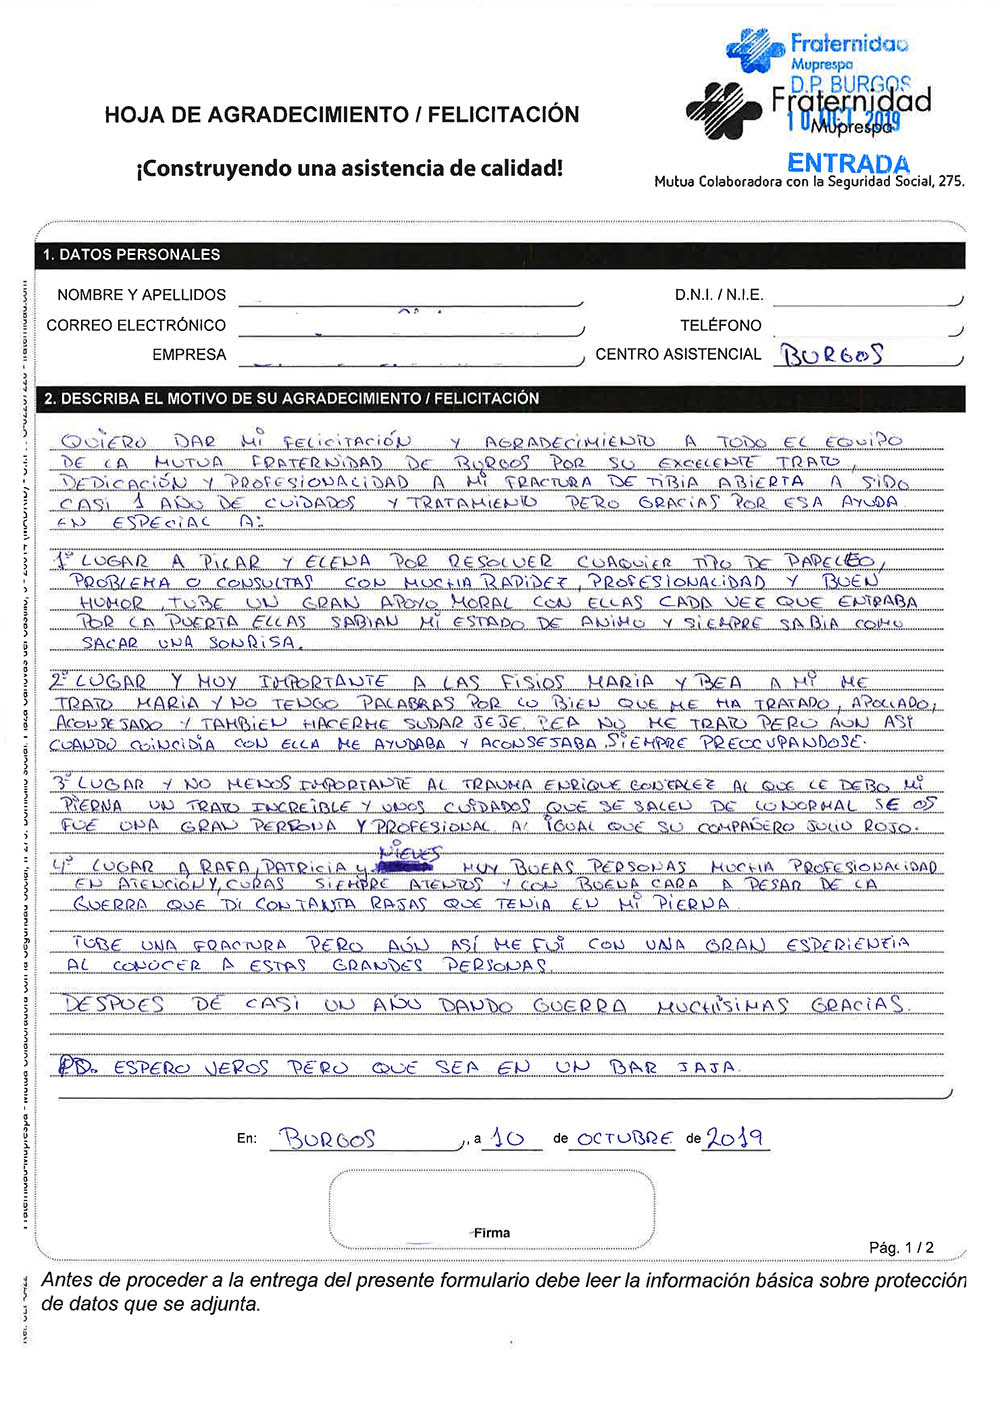 Fraternidad
Muprespa
D.P. BURGOS
Fraternidad
10 OCT. 2019
Muprespa
ENTRADA
Mutua Colaboradora con la Seguridad Social, 275.
HOJA DE AGRADECIMIENTO / FELICITACIÓN
¡Construyendo una asistencia de calidad!
1. DATOS PERSONALES
NOMBRE Y APELLIDOS
D.N.I. / N.I.E.
CORREO ELECTRÓNICO
TELÉFONO
EMPRESA
CENTRO ASISTENCIAL BURGOS
2. DESCRIBA EL MOTIVO DE SU AGRADECIMIENTO / FELICITACIÓN
QUIERO DAR MI FELICITACIÓN Y AGRADECIMIENTO A TODO EL EQUIPO
DE LA MUTUA FRATERNIDAD DE BURGOS POR SU EXCELENTE TRATO,
DEDICACIÓN Y PROFESIONALIDAD A MI FRACTURA DE TIBIA ABIERTA A SIDO
CASI 1 AÑO DE CUIDADOS Y TRATAMIENTO PERO GRACIAS POR ESA AYUDA
EN ESPECIAL A:
1º LUGAR A PILAR Y ELENA POR RESOLVER CUAQUIER TIPO DE PAPELEO,
PROBLEMA O CONSULTAS CON MUCHA RAPIDEZ, PROFESIONALIDAD Y BUEN
HUMOR, TUBE UN GRAN APOYO MORAL CON ELLAS CADA VEZ QUE ENTRABA
POR LA PUERTA ELLAS SABIAN MI ESTADO DE ANIMO Y SIEMPRE SABIA COMO
SACAR UNA SONRISA.
2º LUGAR Y MUY IMPORTANTE A LAS FISIOS MARIA Y BEA A MI ME
TRATO MARIA Y NO TENGO PALABRAS POR LO BIEN QUE ME HA TRATADO, APOLLADO,
ACONSEJADO Y TAMBIEN HACERME SUDAR JEJE. BEA NO ME TRATO PERO AUN ASI
CUANDO COINCIDIA CON ELLA ME AYUDABA Y ACONSEJABA SIEMPRE PREOCUPANDOSE.
3º LUGAR Y NO MENOS IMPORTANTE AL TRAUMA ENRIQUE GONZALEZ AL QUE LE DEBO MI
PIERNA UN TRATO INCREIBLE Y UNOS CUIDADOS QUE SE SALEN DE LO NORMAL SE OS
FUE UNA GRAN PERSONA Y PROFESIONAL AL IGUAL QUE SU COMPAÑERO JULIO ROJO.
4º LUGAR A RAFA, PATRICIA Y NIEVES MUY BUEAS PERSONAS MUCHA PROFESIONALIDAD
EN ATENCION Y, CURAS SIEMPRE ATENTOS Y CON BUENA CARA A PESAR DE LA
GUERRA QUE DI CON TANTA RAJAS QUE TENIA EN MI PIERNA.
TUBE UNA FRACTURA PERO AÚN ASÍ ME FUI CON UNA GRAN ESPERIENFIA
AL CONOCER A ESTAS GRANDES PERSONAS.
DESPUES DE CASI UN AÑO DANDO GUERRA MUCHÍSIMAS GRACIAS.
PD. ESPERO VEROS PERO QUE SEA EN UN BAR JAJA.
En: BURGOS, a 10 de OCTUBRE de 2019
Firma
Pág. 1 / 2
Antes de proceder a la entrega del presente formulario debe leer la información básica sobre protección
de datos que se adjunta.